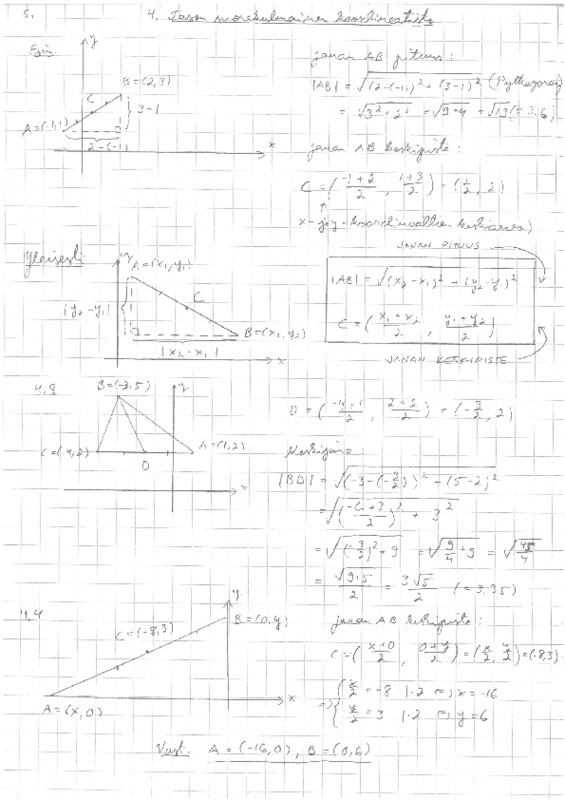 5. 4. Tason suorakulmainen koordinaatisto
Esim.
y
B=(2,3)
C
3-1
A=(-1,1)
2-(-1)
x
janan AB pituus:
|AB| = √((2-(-1))² + (3-1)²) (Pythagoras)
= √(3²+2²) = √(9+4) = √13 (≈3,6)
janan AB keskipiste:
C = ((-1+2)/2, (1+3)/2) = (1/2, 2)
↑
x- ja y-koordinaattien keskiarvo)
Yleisesti:
y
A=(x₁,y₁)
|y₂-y₁|
C
B=(x₂,y₂)
|x₂-x₁|
x
JANAN PITUUS
|AB| = √((x₂-x₁)² + (y₂-y₁)²)
C = ((x₁+x₂)/2, (y₁+y₂)/2)
JANAN KESKIPISTE
4,8
B=(-3,5)
y
C=(-4,2)
A=(1,2)
D
x
D = ((-4+1)/2, (2+2)/2) = (-3/2, 2)
Keskijana:
|BD| = √((-3-(-3/2))² + (5-2)²)
= √(((-6+3)/2)² + 3²)
= √((-3/2)²+9) = √(9/4+9) = √(45/4)
= √(9·5)/2 = 3√5/2 (≈3,35)
4,4
y
C=(-8,3)
B=(0,y)
x
A=(x,0)
janan AB keskipiste:
C = ((x+0)/2, (0+y)/2) = (x/2, y/2) = (-8,3)
⇒ { x/2 = -8 |·2 ⇔ x=-16
y/2 = 3 |·2 ⇔ y=6
Vast: A=(-16,0), B=(0,6)